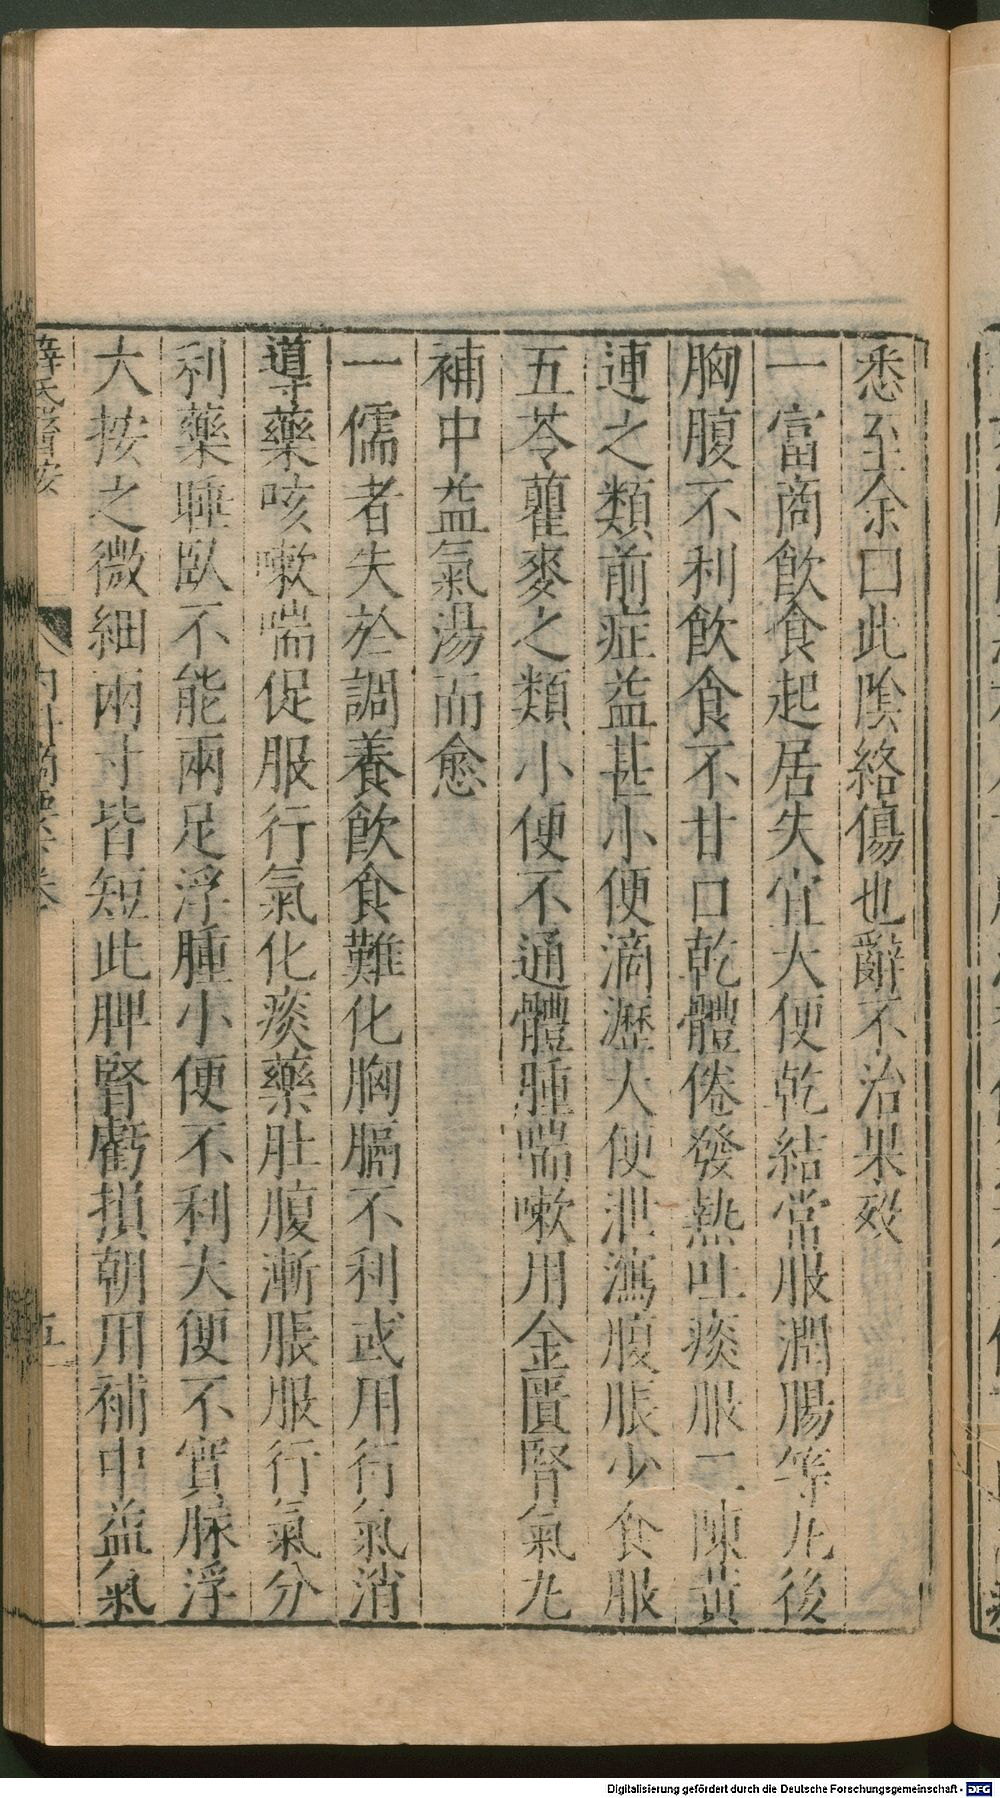 悉至余曰此陰絡傷也辭不治果歿
一富商飲食起居失宜大便乾結常服潤腸等丸後
胸腹不利飲食不甘口乾體倦發熱吐痰服二陳黃
連之類前症益甚小便滴瀝大便泄瀉腹脹少食服
五苓藿麥之類小便不通體腫喘嗽用金匱腎氣丸
補中益氣湯而愈
一儒者失於調養飲食難化胸膈不利或用行氣消
導藥咳嗽喘促服行氣化痰藥肚腹漸脹服行氣分
利藥睡臥不能兩足浮腫小便不利大便不實脉浮
大按之微細兩寸皆短此脾腎虧損朝用補中益氣
薛氏醫按 內科摘要 卷 五
Digitalisierung gefördert durch die Deutsche Forschungsgemeinschaft - DFG